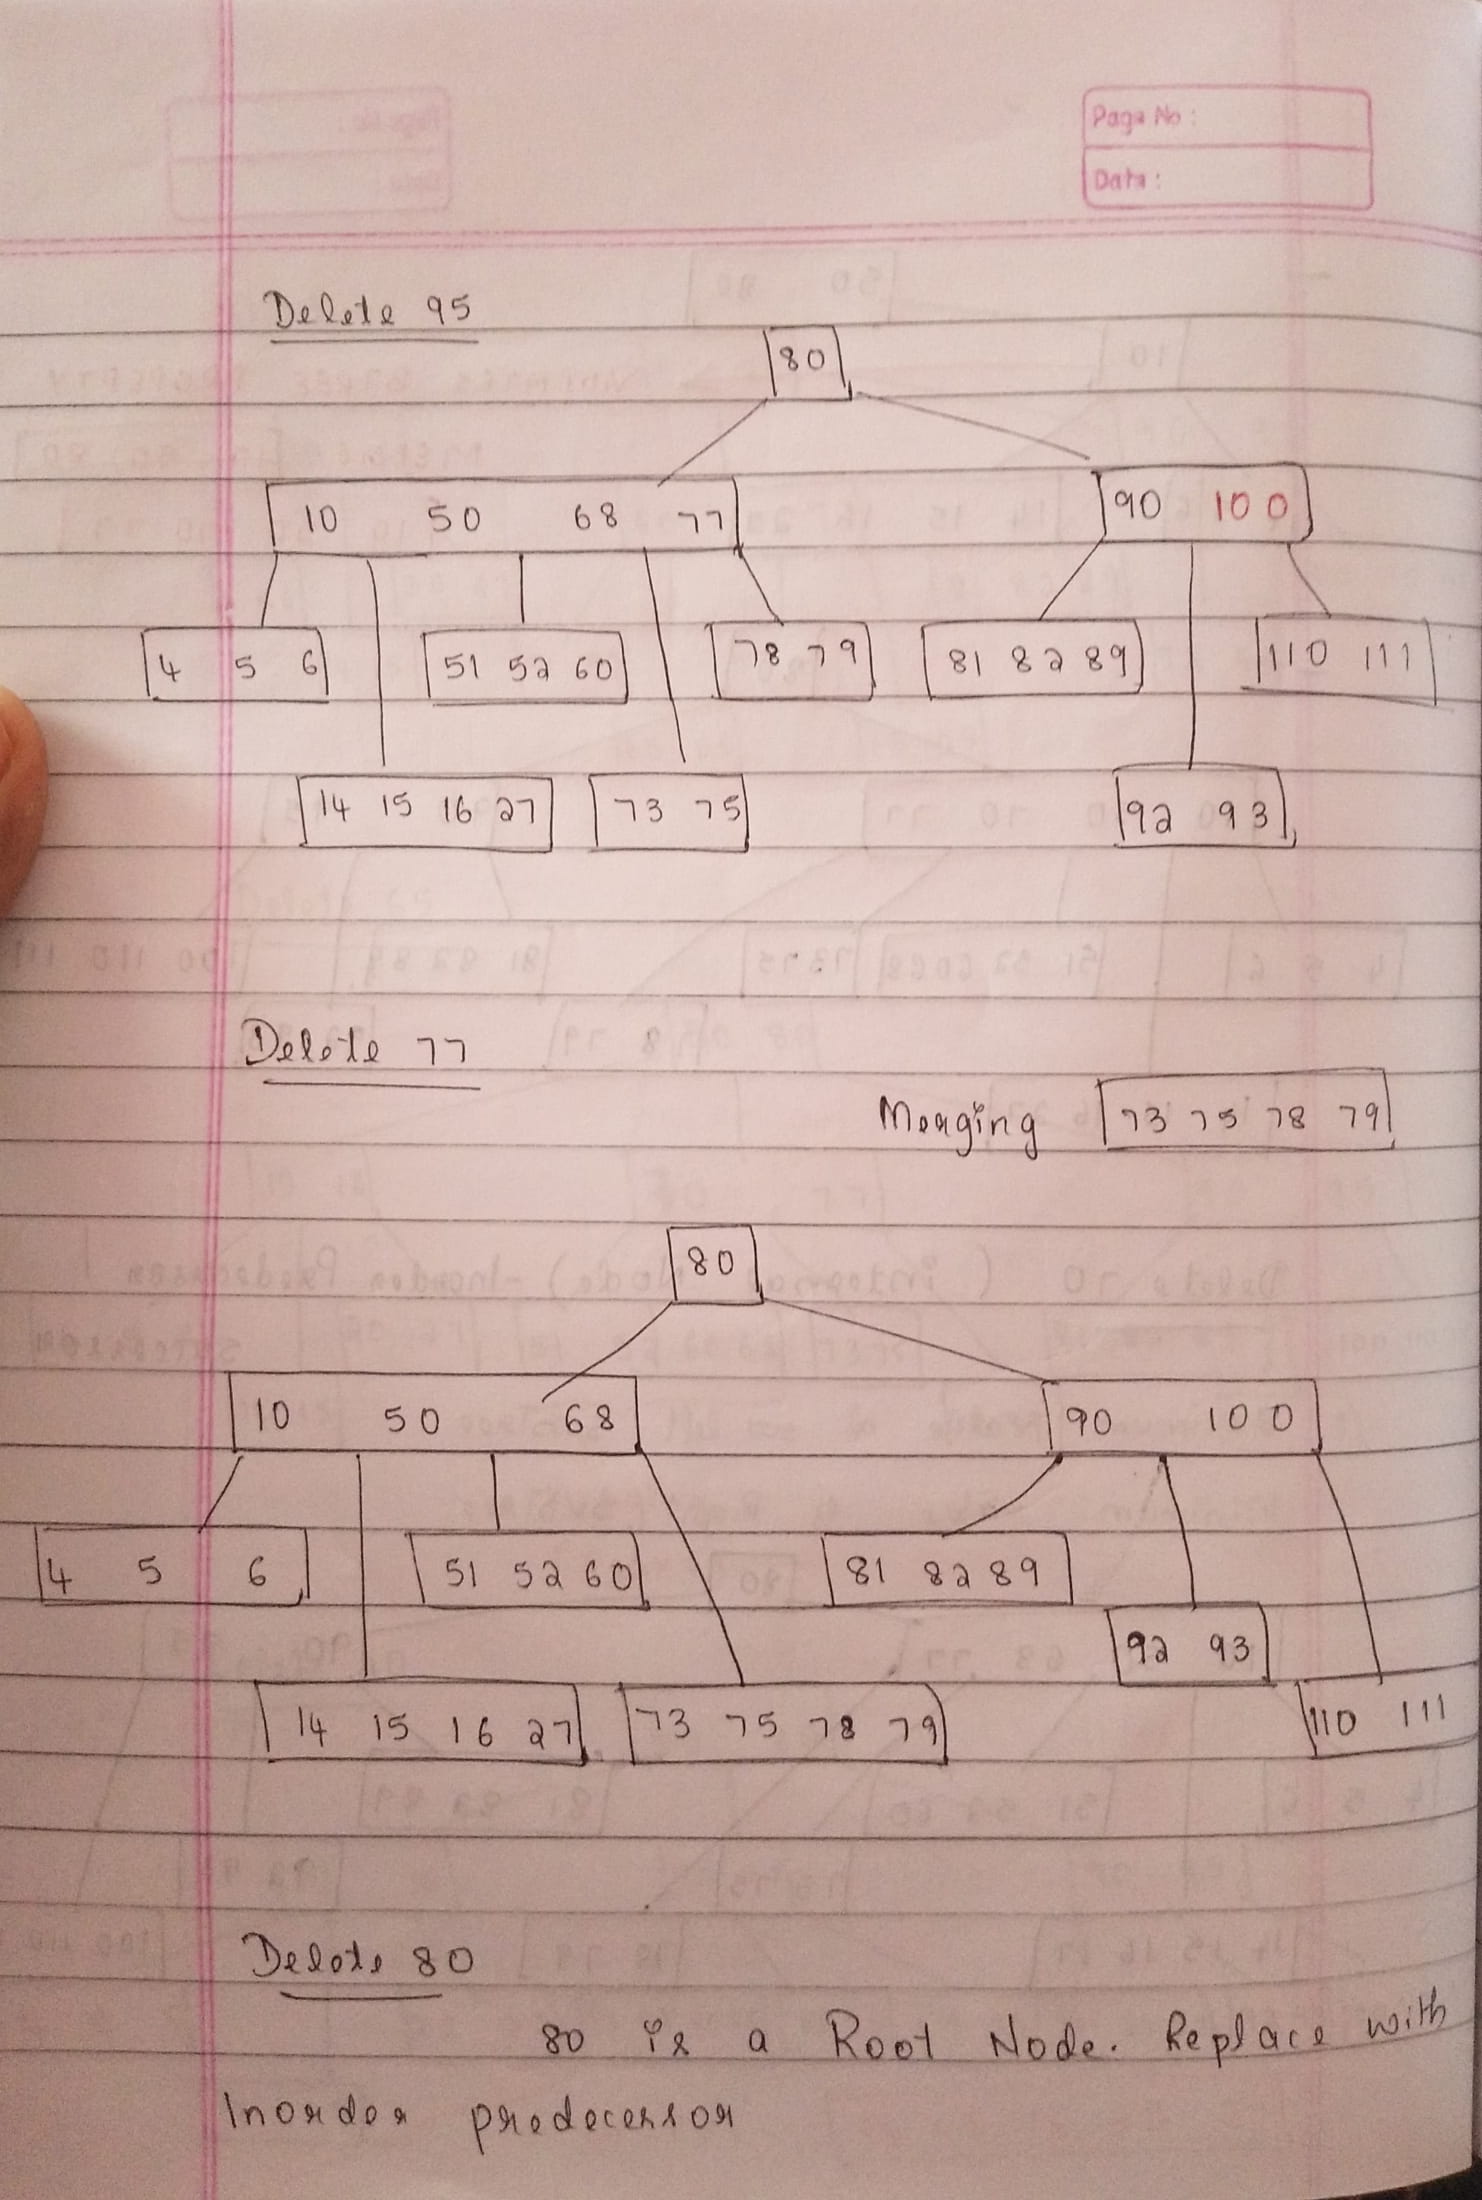 Page No :
Date :
Delete 95
80
10 50 68 77
90 100
4 5 6
51 52 60
78 79
81 82 89
110 111
14 15 16 27
73 75
92 93
Delete 77
Merging 73 75 78 79
80
10 50 68
90 100
4 5 6
51 52 60
81 82 89
92 93
14 15 16 27
73 75 78 79
110 111
Delete 80
80 is a Root Node. Replace with
Inorder predecessor